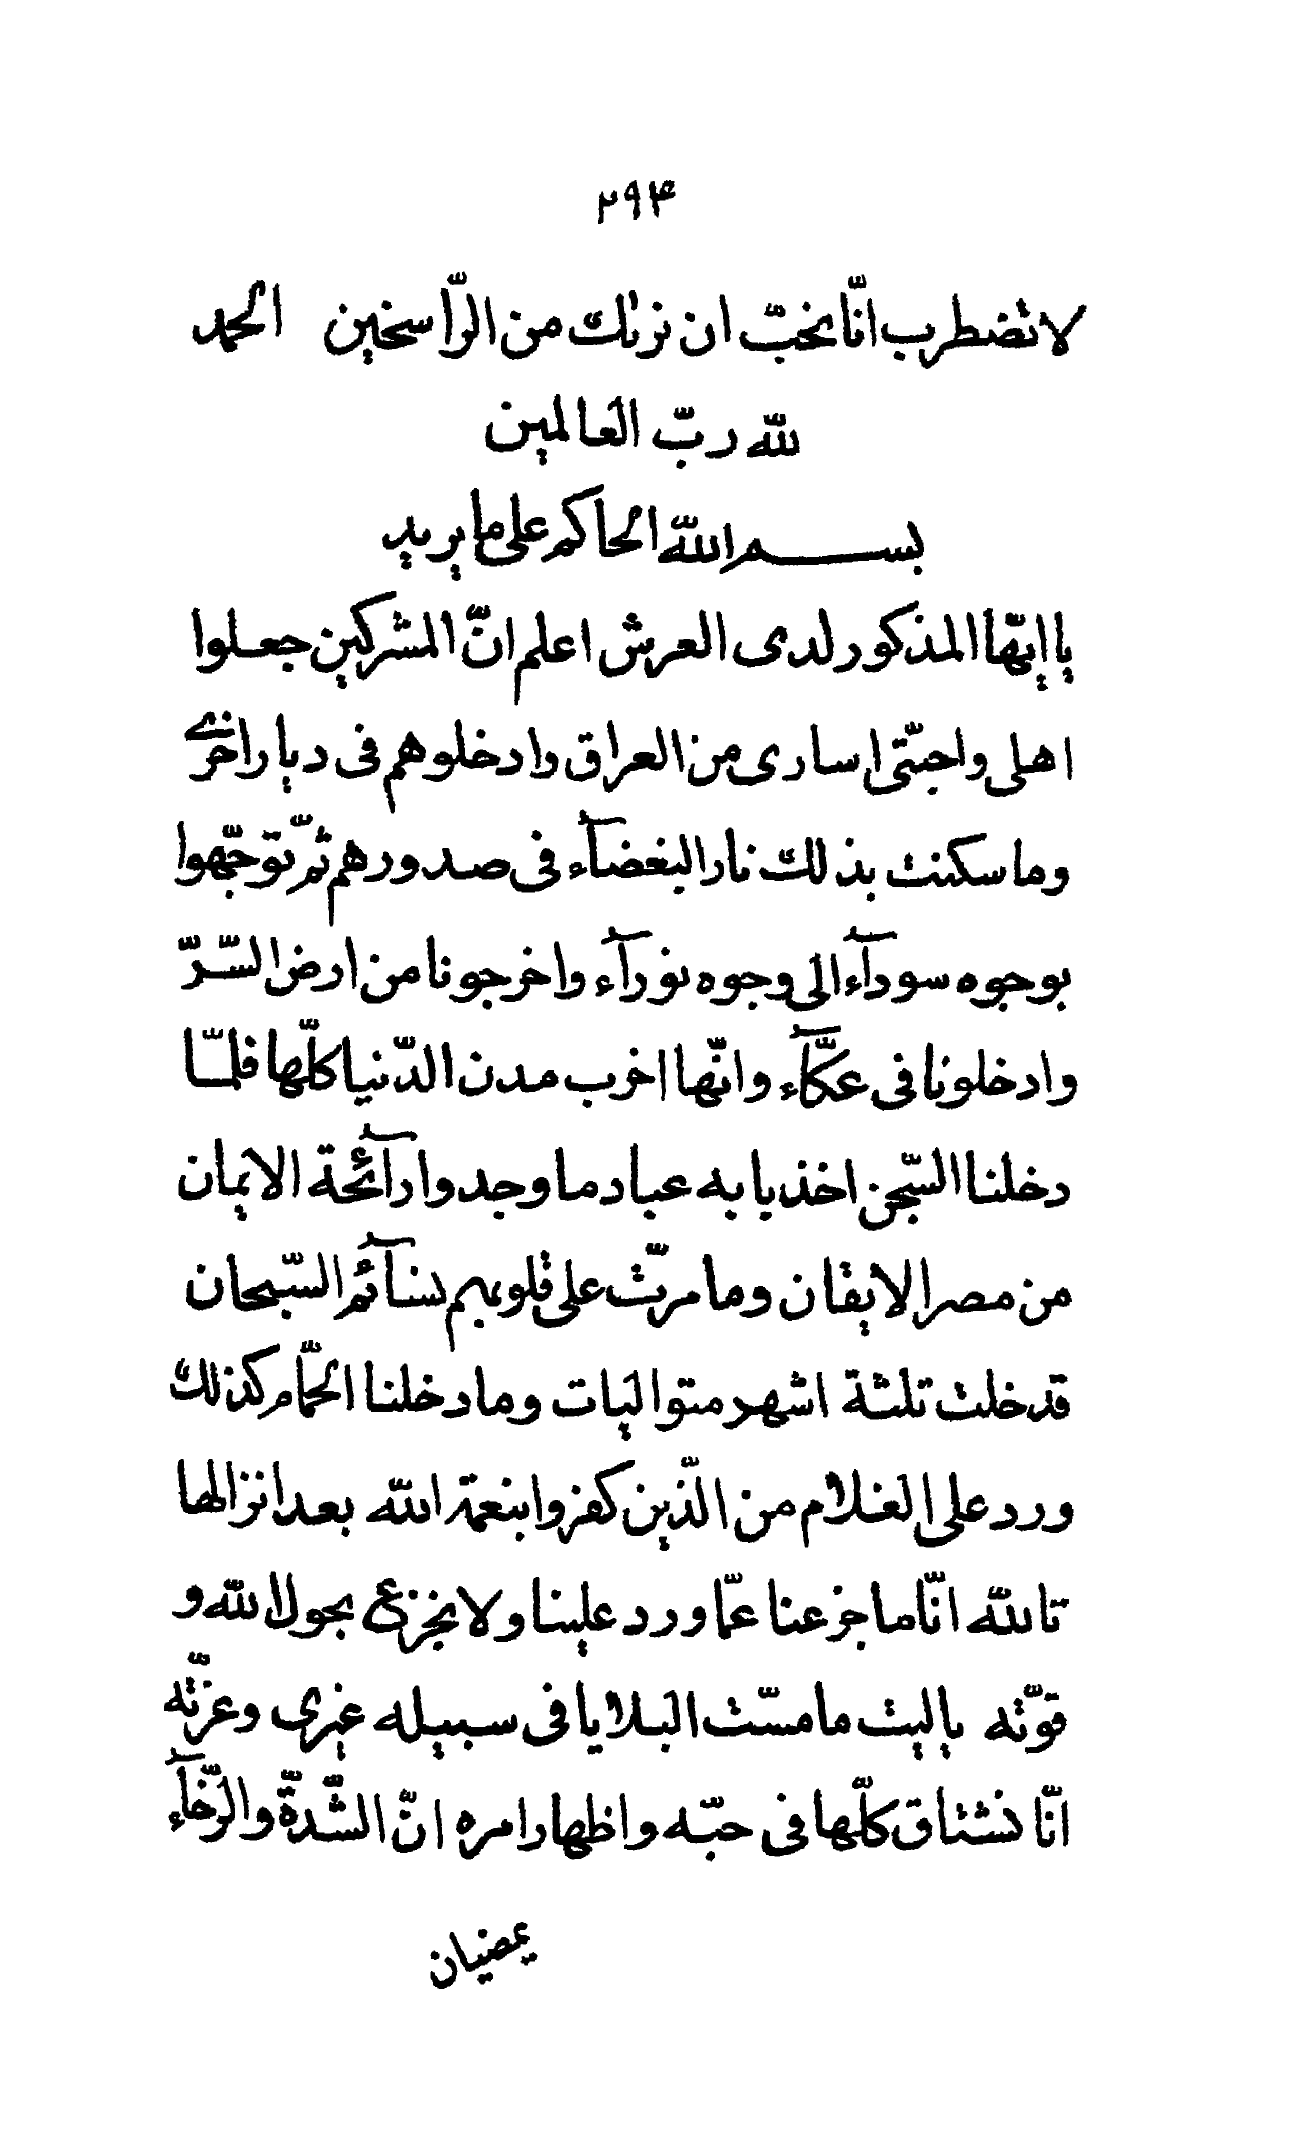 ۲۹۴
لا تضطرب انّا نحبّ ان نرىك من الرّاسخين الحمد
للّه ربّ العالمين
بسم اللّه الحاكم على ما يريد
يا ايّها المذكور لدى العرش اعلم انّ المشركين جعلوا
اهلى و احبّتى اسارى من العراق و ادخلوهم فى ديار اخرى
و ما سكنت بذلك نار البغضآء فى صدورهم ثمّ توجّهوا
بوجوه سودآء الى وجوه نورآء و اخرجونا من ارض السّرّ
و ادخلونا فى عكّآء و انّها اخرب مدن الدّنيا كلّها فلمّا
دخلنا السّجن اخذ بابه عباد ما وجدوا رآئحة الايمان
من مصر الايقان و ما مرّت على قلوبهم نسآئم السّبحان
قد خلت تلثة اشهر متواليات و ما دخلنا الحمّام كذلك
ورد على الغلام من الّذين كفروا بنعمة اللّه بعد انزالها
تاللّه انّا ما جزعنا عمّا ورد علينا و لا نجزع بحول اللّه و
قوّته ياليت ما مسّت البلايا فى سبيله غيرى و عزّته
انّا نشتاق كلّها فى حبّه و اظهار امره انّ الشّدّة و الرّخآء
يمضيان